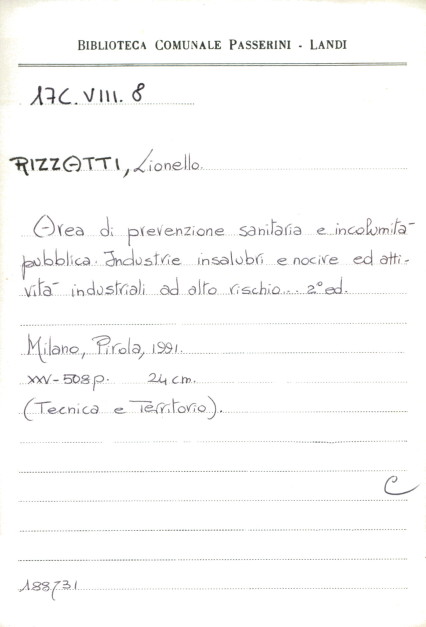 BIBLIOTECA COMUNALE PASSERINI - LANDI
17C. VIII. 8
RIZZATTI, Lionello.
Area di prevenzione sanitaria e incolumità
pubblica. Industrie insalubri e nocive ed atti-
vità industriali ad alto rischio... 2° ed.
Milano, Pirola, 1991.
XXV-508 p. 24 cm.
(Tecnica e Territorio).
C
188731